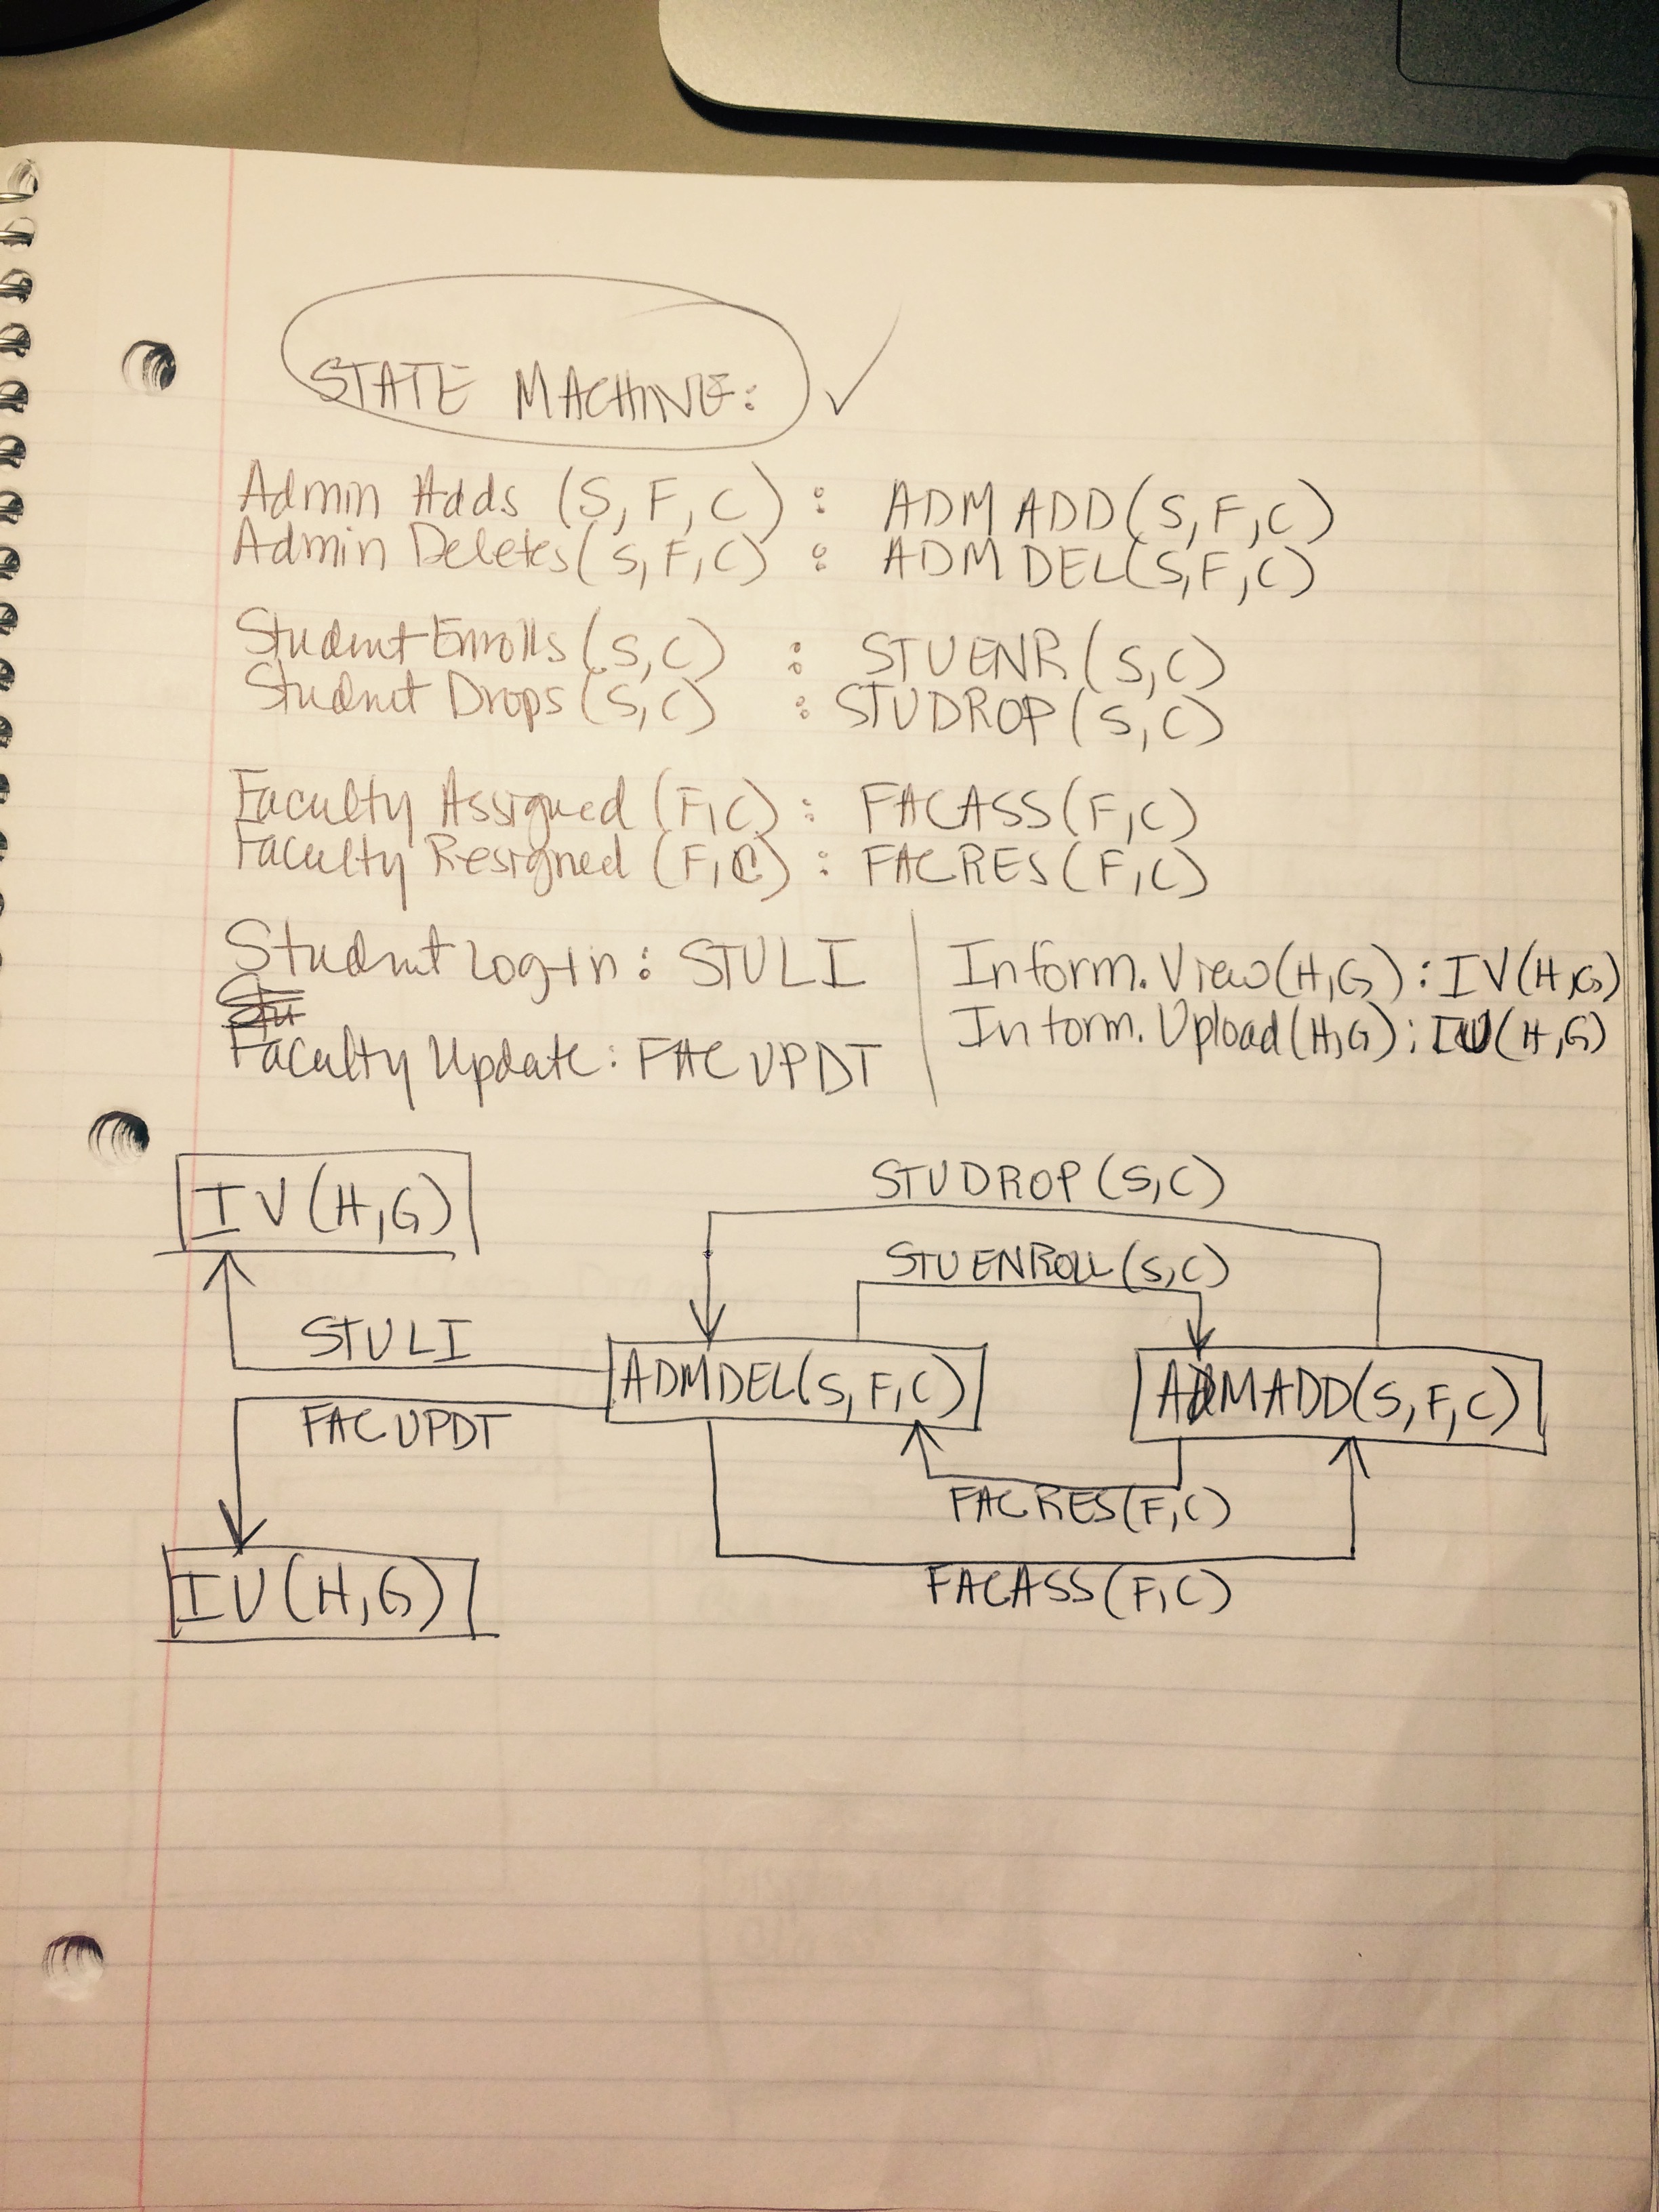 STATE MACHINE:
Admin Adds (S, F, C) : ADMADD(S,F,C)
Admin Deletes(S,F,C) : ADMDEL(S,F,C)
Student Enrolls(S,C) : STUENR(S,C)
Student Drops(S,C) : STUDROP(S,C)
Faculty Assigned (F,C): FACASS(F,C)
Faculty Resigned (F,C): FACRES(F,C)
Student Log-In: STULI
Stu
Faculty Update: FACUPDT
Inform. View(H,G): IV(H,G)
Inform. Upload(H,G): IU(H,G)
IV(H,G)
STUDROP(S,C)
STUENROLL(S,C)
STULI
ADMDEL(S,F,C)
ADMADD(S,F,C)
FACUPDT
FACRES(F,C)
IU(H,G)
FACASS(F,C)